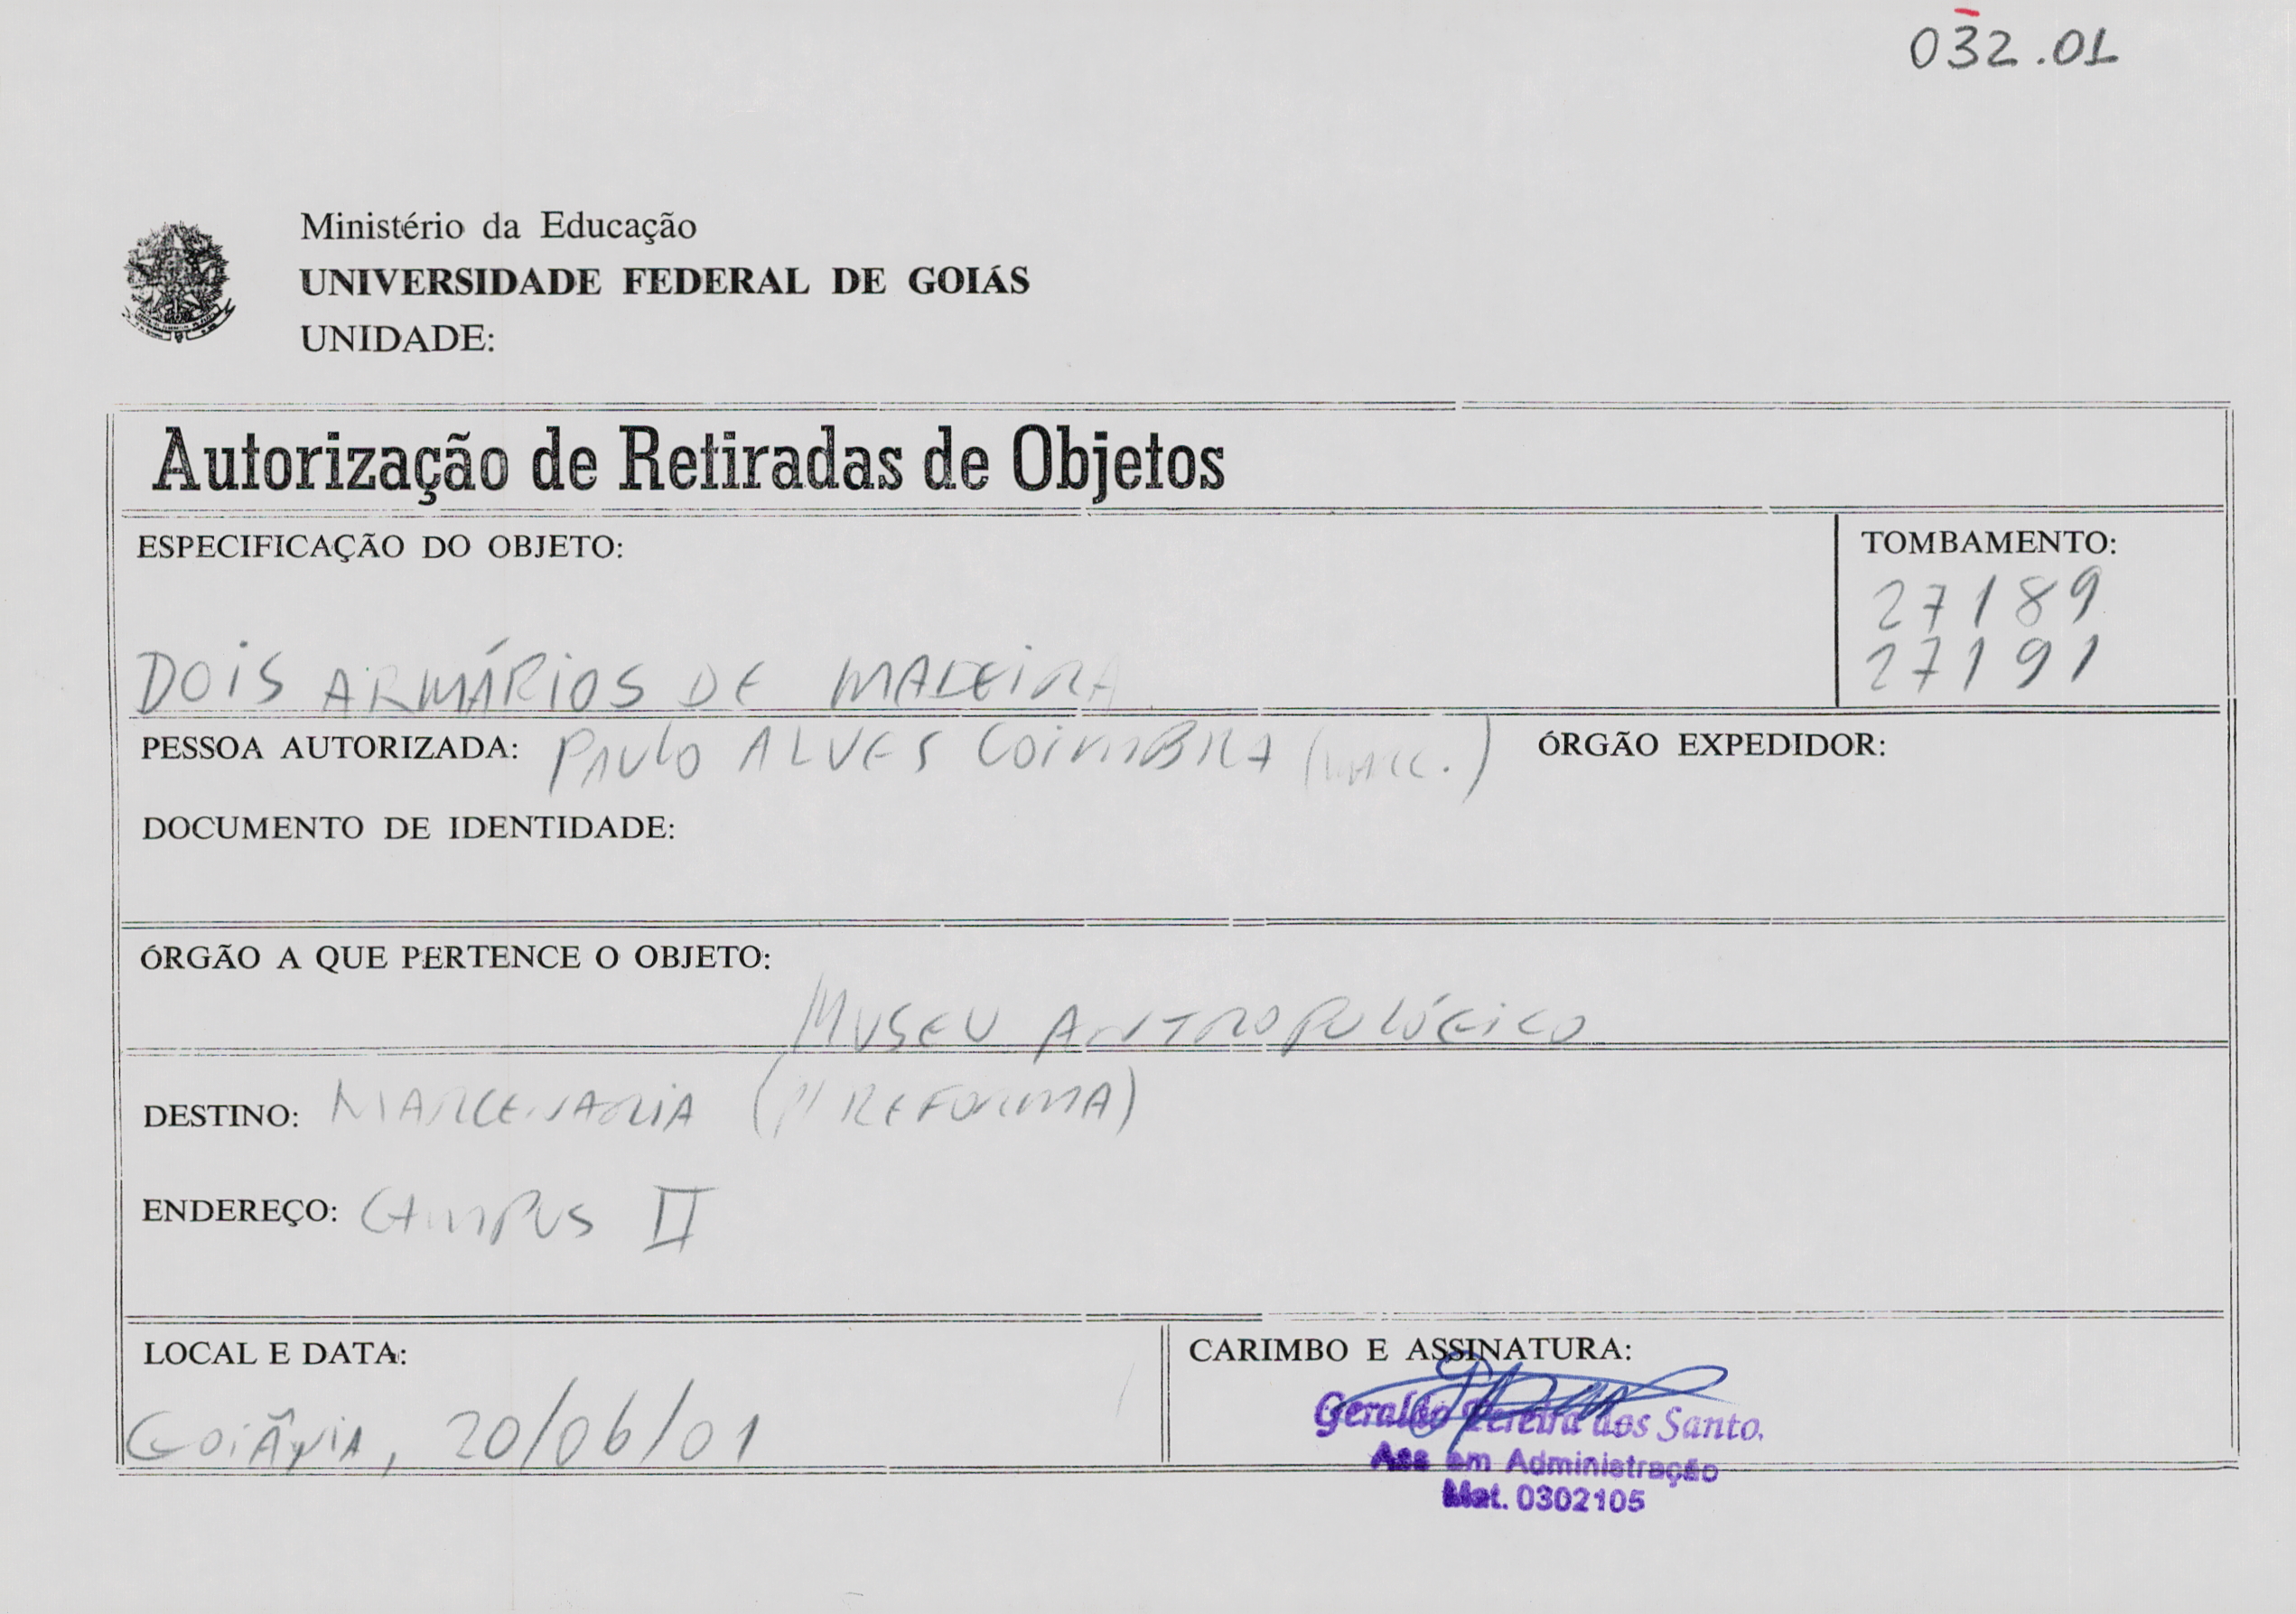 032.01
Ministério da Educação
UNIVERSIDADE FEDERAL DE GOIÁS
UNIDADE:
Autorização de Retiradas de Objetos
ESPECIFICAÇÃO DO OBJETO:
TOMBAMENTO:
27189
27191
DOIS ARMÁRIOS DE MADEIRA
PESSOA AUTORIZADA: PAULO ALVES COIMBRA (MARC.) ÓRGÃO EXPEDIDOR:
DOCUMENTO DE IDENTIDADE:
ÓRGÃO A QUE PERTENCE O OBJETO:
MUSEU ANTROPOLÓGICO
DESTINO: MARCENARIA (P/ REFORMA)
ENDEREÇO: CAMPUS II
LOCAL E DATA:
GOIÂNIA, 20/06/01
CARIMBO E ASSINATURA:
Geraldo Pereira dos Santo.
Ass em Administração
Mat. 0302105